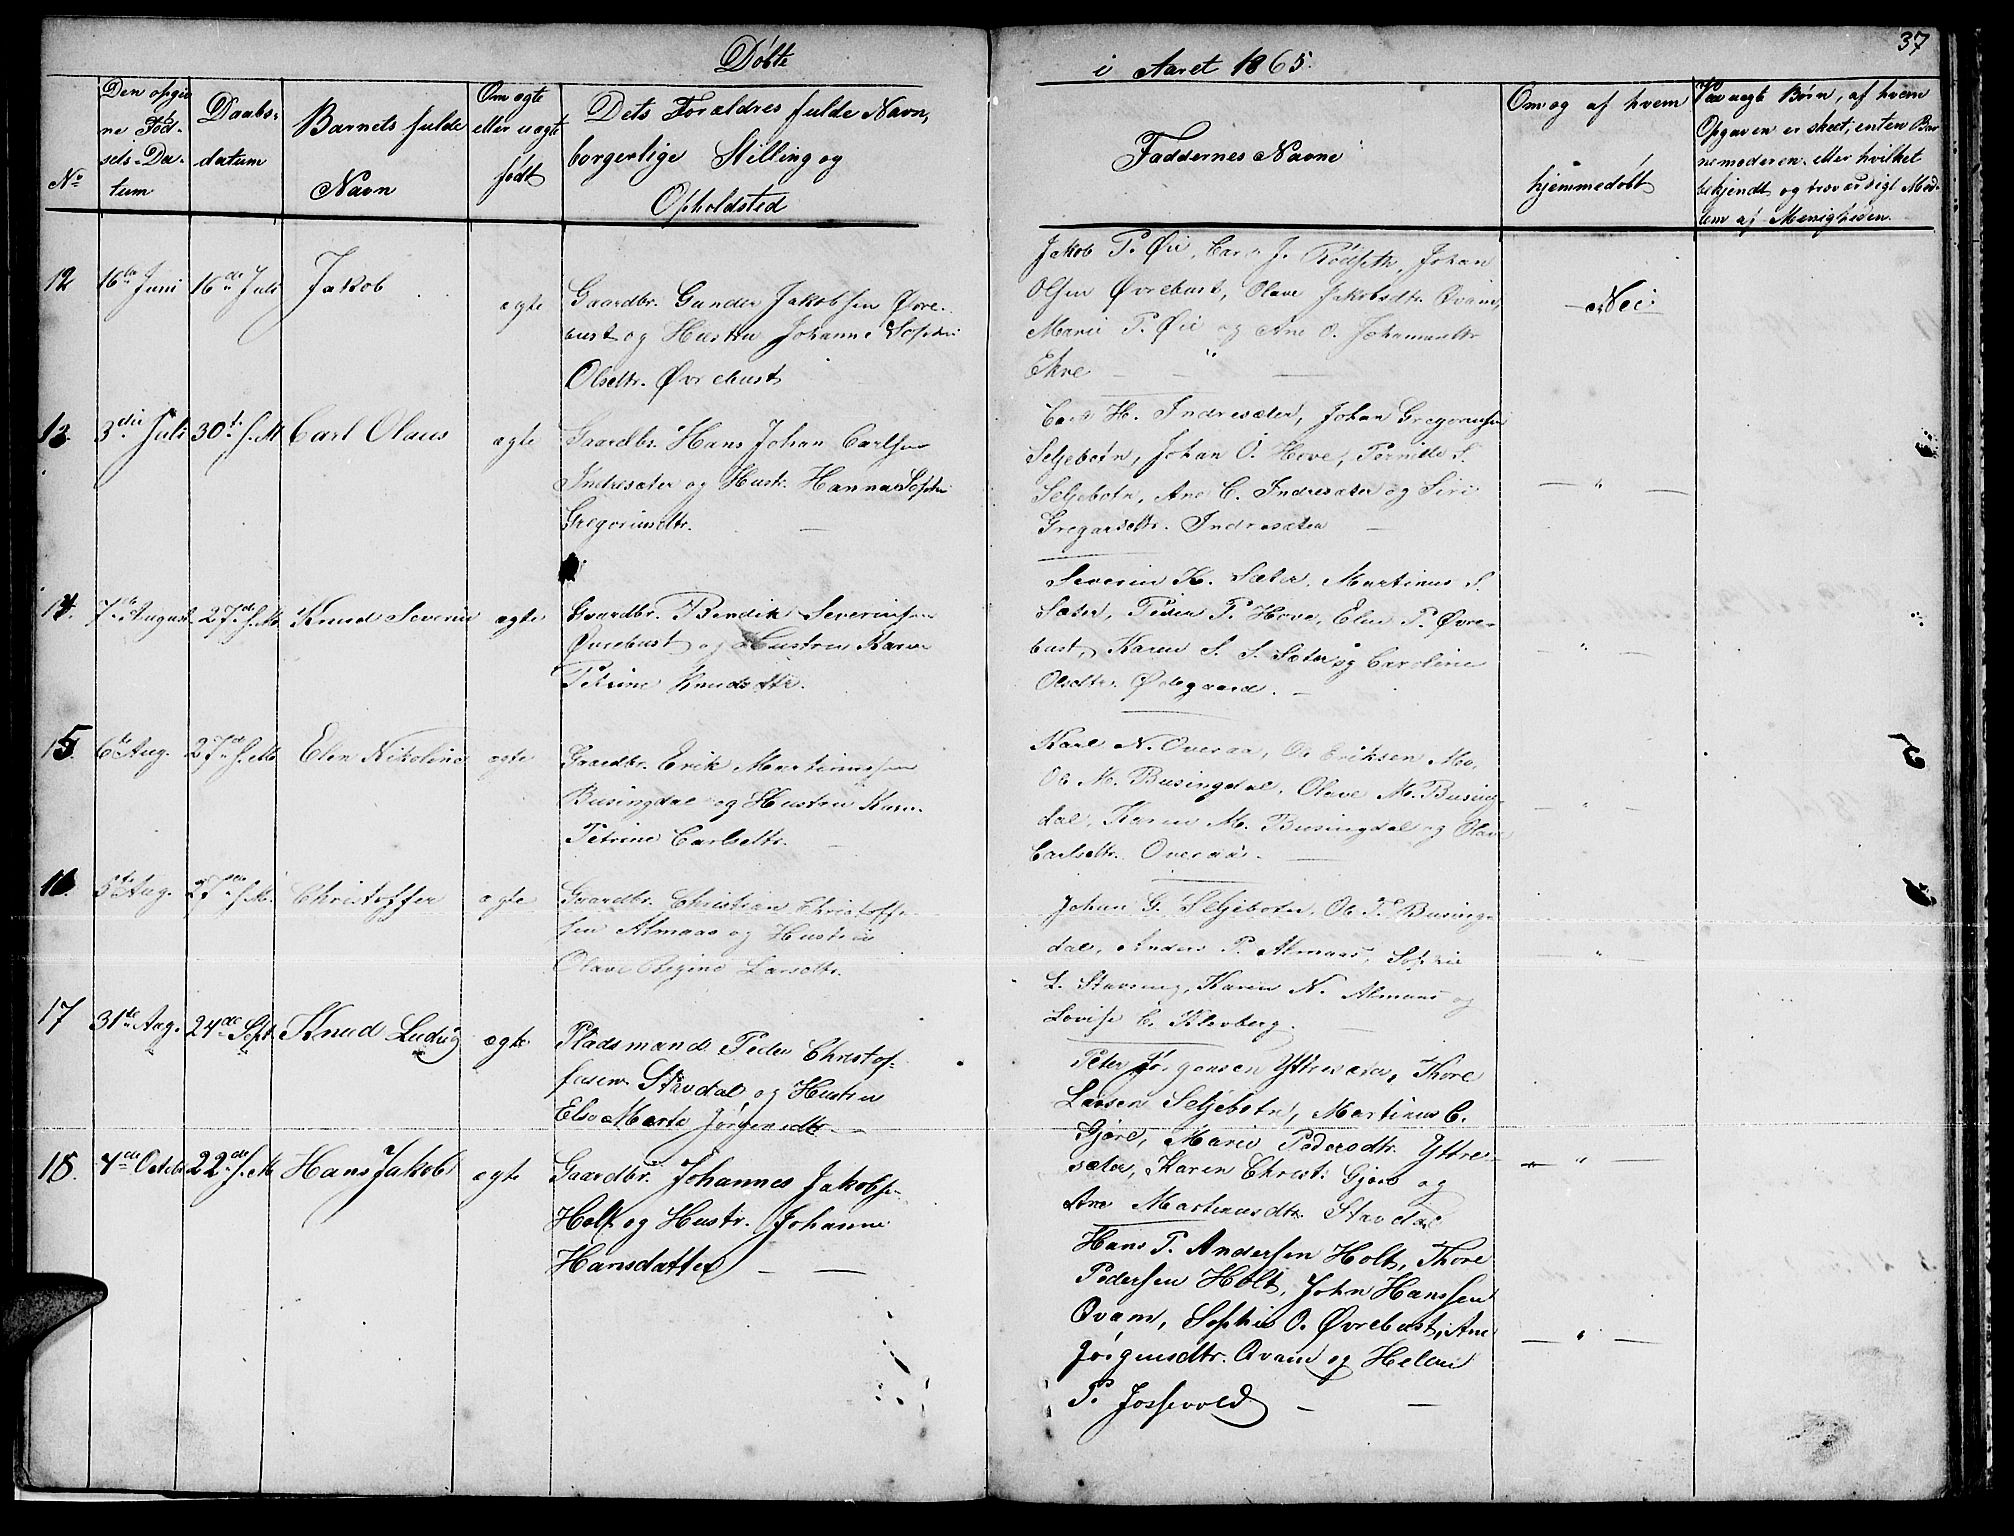 37
Døbte
i Aaret 1865.
No
Den opgiv
ne Fød-
sels-Da-
tum
Daabs-
datum
Barnets fulde
Navn
Om ægte
eller uægte
født
Dets Forældres fulde Navn,
borgerlige Stilling og
Opholdsted
Faddernes Navne
Om og af hvem
hjemmedøbt
uægte Børn, af hvem
Opgaven er skeet, enten Bar
nemoderen eller hvilket
bekjendt og troværdigt Med-
lem af Menigheden.
12
16de Juni
16de Juli
Jakob
ægte
Gaardbr. Gunder Jakobsen Øvre-
bust og Hustru Johanne Sophie
Olsdtr. Øvrebust
Jakob P. Øie, J. Rødseth, Johan
Olsen Øvrebust, Olave Jakobsdtr. Qvam,
Marie P. Øie og Ane O. Johansdtr.
Ekre
Nei
13.
3die Juli
30te s. M
Carl Olaus
ægte
Gaardbr. Hans Johan Carlsen
Indresæter og Hustr. Hanna Sophie
Gregoriusdtr. —
Carl H. Indresæter, Johan Gregoriussen
Seljebotn, Johan O. Hove, Pernille S.
Seljebotn, Ane C. Indresæter og Siri
Gregorsdtr. Indresæter —
— " —
14.
7de August.
27de s. M.
Knud Severin
ægte
Gaardbr. Bendik Severinsen
Øvrebust og Hustru Karen
Petrine Knudsdtr.
Severin K. Sæter, Martinus S.
Sæter, Peder P. Hove, Elen P. Øvre-
bust, Karen S. S. Sæter og Caroline
Olsdtr. Ødegaard. —
— " —
15.
6te Aug.
27de s. M.
Elen Nikoline
ægte
Gaardbr. Erik Martinussen
Busingdal og Hustru Karen
Petrine Carlsdtr. —
Karl N. Overaa, Ole Eriksen Mo,
Ole M. Busingdal, Olave M. Busing-
dal, Karen M. Busingdal og Olave
Carlsdtr. Overaa. —
— " —
5
16.
5te Aug.
27de s. M.
Christoffer
ægte
Gaardbr. Christian Christoffer
sen Almaas og Hustru
Olave Regine Larsdtr.
Johan G. Seljebotn, Ole T. Busing-
dal, Anders P. Almaas, Sophie
L. Stavseng, Karen N. Almaas og
Lovise C. Klovberg.
— " —
17
31te Aug.
24de Sept.
Knud Ludvig
ægte
Pladsmand Peder Christof-
fersen Stavdal og Hustru
Else Marte Jørgensdtr. —
Peter Jørgensen Yttresæter, Thore
Larsen Seljebotn, Martinus C.
Gjøre, Marie Pedersdtr. Yttre-
sæter, Karen Christ. Gjøre og
Ane Martinusdtr. Stavdal
— " —
18.
4de October
22de s. M
Hans Jakob
ægte
Gaardbr. Johannes Jakobsen
Holt og Hustr. Johanne
Hansdatter — —
Hans P. Andersen Holt, Thore
Pedersen Holt, John Hanssen
Qvam, Sophie O. Øvrebust, Ane
Jørgensdtr. Qvam og Helene
P. Jossevold — —
— " —